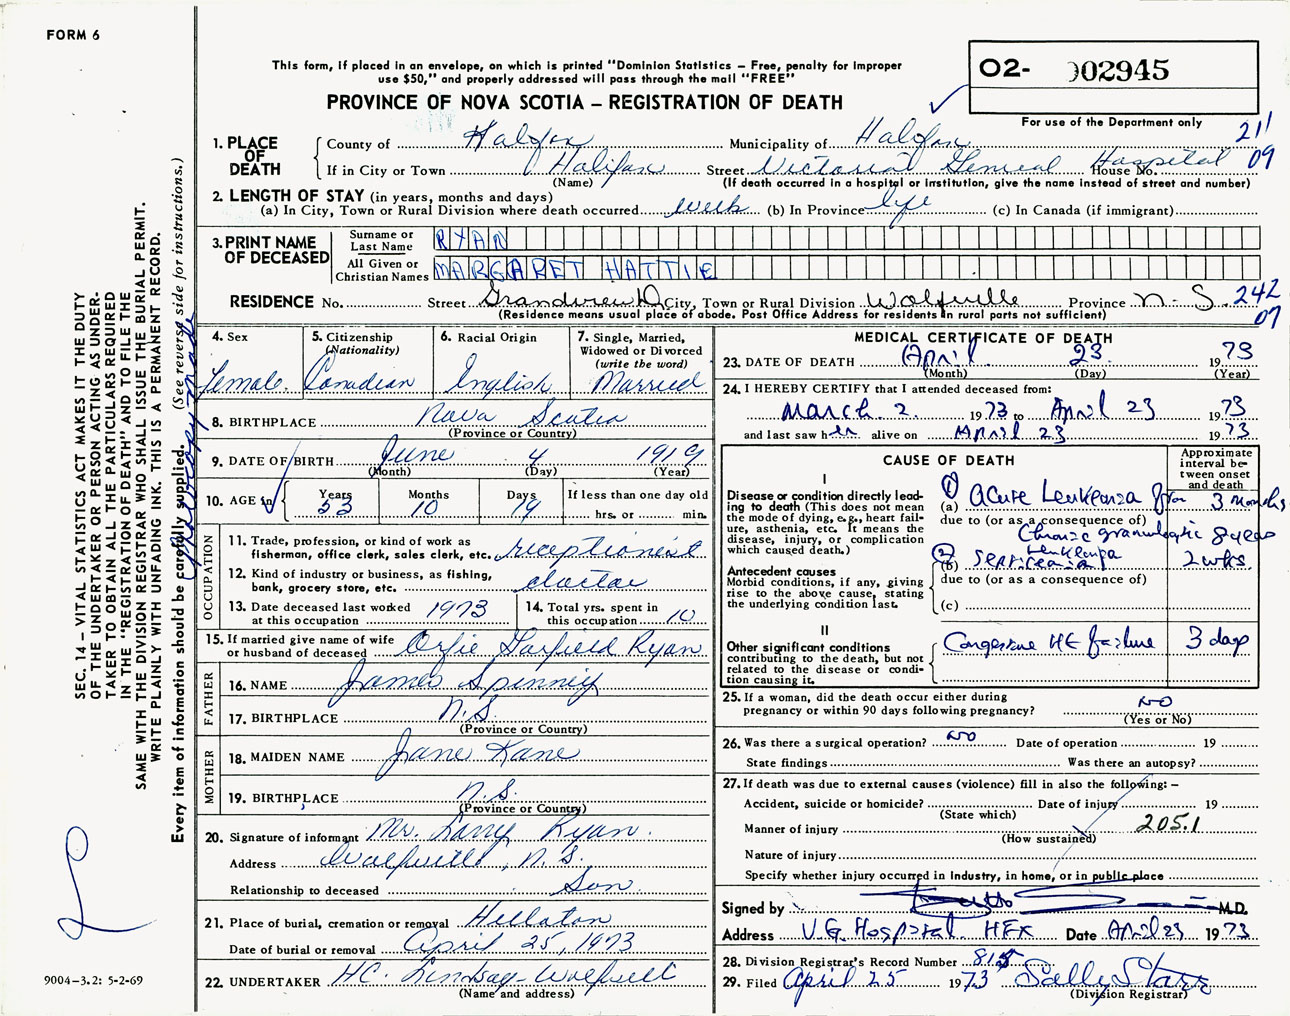 FORM 6
This form, if placed in an envelope, on which is printed "Dominion Statistics — Free, penalty for improper
use $50," and properly addressed will pass through the mail "FREE"
PROVINCE OF NOVA SCOTIA — REGISTRATION OF DEATH
O2- 002945
For use of the Department only
211
09
1. PLACE OF DEATH
County of Halifax Municipality of Halifax
If in City or Town Halifax Street Victoria General Hospital House No.
(Name) (If death occurred in a hospital or institution, give the name instead of street and number)
2. LENGTH OF STAY (in years, months and days)
(a) In City, Town or Rural Division where death occurred week (b) In Province life (c) In Canada (if immigrant)
3. PRINT NAME OF DECEASED
Surname or Last Name RYAN
All Given or Christian Names MARGARET HATTIE
RESIDENCE No. Street Grandview D City, Town or Rural Division Wolfville Province N.S. 242
(Residence means usual place of abode. Post Office Address for residents in rural parts not sufficient) 07
4. Sex Female.
5. Citizenship (Nationality) Canadian
6. Racial Origin English
7. Single, Married, Widowed or Divorced (write the word) Married
8. BIRTHPLACE Nova Scotia
(Province or Country)
9. DATE OF BIRTH June 4 1919
(Month) (Day) (Year)
10. AGE in Years 53 Months 10 Days 19 If less than one day old
hrs. or min.
OCCUPATION
11. Trade, profession or kind of work as
fisherman, office clerk, sales clerk, etc. receptionist
12. Kind of industry or business, as fishing,
bank, grocery store, etc. doctor
13. Date deceased last worked
at this occupation 1973
14. Total yrs. spent in
this occupation 10
15. If married give name of wife
or husband of deceased Orfie Garfield Ryan
FATHER
16. NAME James Spinney
17. BIRTHPLACE N.S.
(Province or Country)
MOTHER
18. MAIDEN NAME Jane Kane
19. BIRTHPLACE N.S.
(Province or Country)
20. Signature of informant Mr. Larry Ryan.
Address Wolfville, N.S.
Relationship to deceased Son.
21. Place of burial, cremation or removal Hillaton
Date of burial or removal April 25, 1973
22. UNDERTAKER HC. Lindsay Wolfville
(Name and address)
MEDICAL CERTIFICATE OF DEATH
23. DATE OF DEATH April 23 1973
(Month) (Day) (Year)
24. I HEREBY CERTIFY that I attended deceased from:
March 2 1973 to April 23 1973
and last saw her alive on April 23 1973
CAUSE OF DEATH
Approximate interval between onset and death
I
Disease or condition directly leading to death (This does not
mean the mode of dying, e.g., heart failure, asthenia, etc. It means the
disease, injury, or complication
which caused death.)
1 (a) Acute Leukemia for 3 months
due to (or as a consequence of)
Chronic granulocytic leukemia 8 years
2 (b) Septicemia 2 wks.
due to (or as a consequence of)
(c)
Antecedent causes
Morbid conditions, if any, giving
rise to the above cause, stating
the underlying condition last.
II
Other significant conditions
contributing to the death, but not
related to the disease or condition causing it.
Congestive HE failure 3 days
25. If a woman, did the death occur either during
pregnancy or within 90 days following pregnancy? NO
(Yes or No)
26. Was there a surgical operation? NO Date of operation 19
State findings Was there an autopsy?
27. If death was due to external causes (violence) fill in also the following: —
Accident, suicide or homicide? Date of injury 19
(State which)
Manner of injury 205.1
(How sustained)
Nature of injury
Specify whether injury occurred in industry, in home, or in public place
Signed by M.D.
Address V.G. Hospital HFX Date April 23 1973
28. Division Registrar's Record Number 815
29. Filed April 25 1973 Sally Starr
(Division Registrar)
SEC. 14 — VITAL STATISTICS ACT MAKES IT THE DUTY
OF THE UNDERTAKER OR PERSON ACTING AS UNDER-
TAKER TO OBTAIN ALL THE PARTICULARS REQUIRED
IN THE "REGISTRATION OF DEATH" AND TO FILE THE
SAME WITH THE DIVISION REGISTRAR WHO SHALL ISSUE THE BURIAL PERMIT.
WRITE PLAINLY WITH UNFADING INK. THIS IS A PERMANENT RECORD.
Every item of information should be carefully supplied. (See reverse side for instructions.)
Photocopy made
9004-3.2: 5-2-69